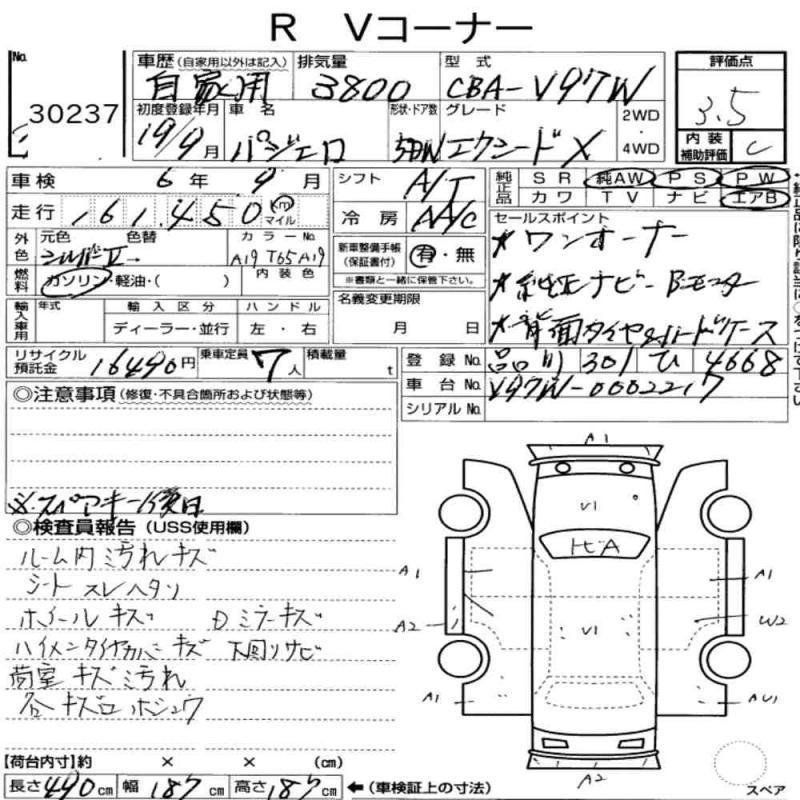 R Vコーナー
No. 30237
車歴 (自家用以外は記入) 自家用
排気量 3800
型式 CBA-V97W
評価点 3.5
初度登録年月 19/9月
車名 パジェロ
形状・ドア数 5DW
グレード エクシードX
2WD・4WD
内装補助評価 C
車検 6年9月
シフト A/T
純正品 SR 純AW PS PW
カワ TV ナビ エアB
走行 161,450 km マイル
冷房 AA/C
外色 元色 シルバーⅡ 色替→ カラーNo. A19 T65A19
内装色
燃料 ガソリン・軽油・( )
新車整備手帳(保証書付) 有・無
※書類と一緒に保管下さい
セールスポイント
★ワンオーナー
★純正ナビーBモニター
★背面タイヤ&ハードケース
輸入車用 年式 輸入区分 ハンドル
ディーラー・並行 左・右
名義変更期限 月 日
リサイクル預託金 16490円
乗車定員 7人
積載量 t
登録No. 品川 301 ひ 4668
車台No. V97W-0002217
シリアルNo.
◎注意事項 (修復・不具合箇所および状態等)
※スペアキー1後日
◎検査員報告 (USS使用欄)
ルーム内汚れキズ
シートスレヘタリ
ホイールキズ Dミラーキズ
ハイメンタイヤカバーキズ 下回リサビ
荷室キズ汚れ
各キズ ホシュウ
A1
V1
ヒビA
A1 A1
A2 W2
V1
A1 AU1
A2
スペア
【荷台内寸】約 × × (cm)
長さ 490cm 幅 187cm 高さ 187cm ←(車検証上の寸法)